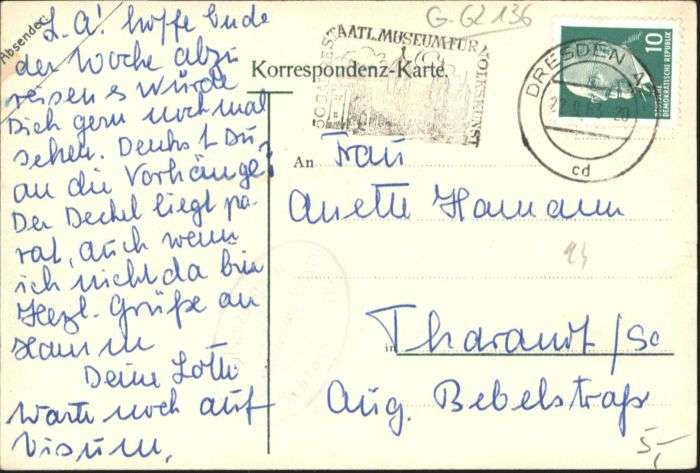 Absender:
L. A! hoffe Ende
der Woche abzu
reisen es würde
Dich gern noch mal
sehen. Denkst Du
an die Vorhänge?
Der Deckel liegt pa-
rat, auch wenn
ich nicht da bin
Herzl. Grüße an
Deine Lotte
Warte noch auf
Visum.
G-G2 136
STAATL. MUSEUM FÜR VOLKSKUNST
Korrespondenz-Karte.
DRESDEN
cd
10
DEUTSCHE DEMOKRATISCHE REPUBLIK
An Frau
Anette Hamann
in Tharandt/Sa
Aug. Bebelstraße
5,-